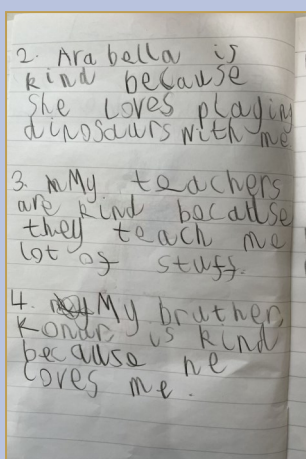 2. Arabella is
kind because
she loves playing
dinosaurs with me
3. My teachers
are kind because
they teach me
lot of stuff.
4. My brather
Konar is kind
because he
loves me.